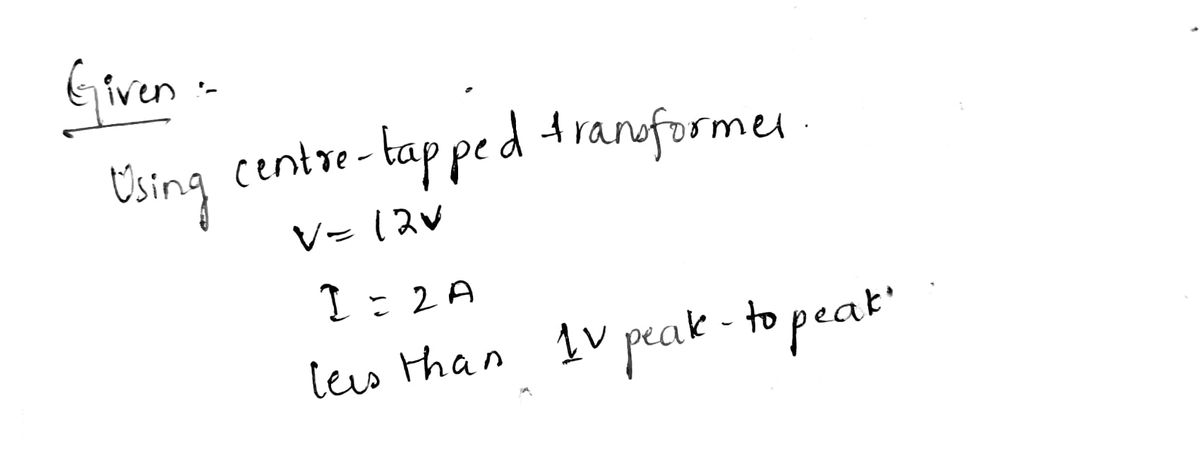 Given :-
Using centre-tapped transformer.
V= 12V
I = 2A
less than 1V peak-to peak.